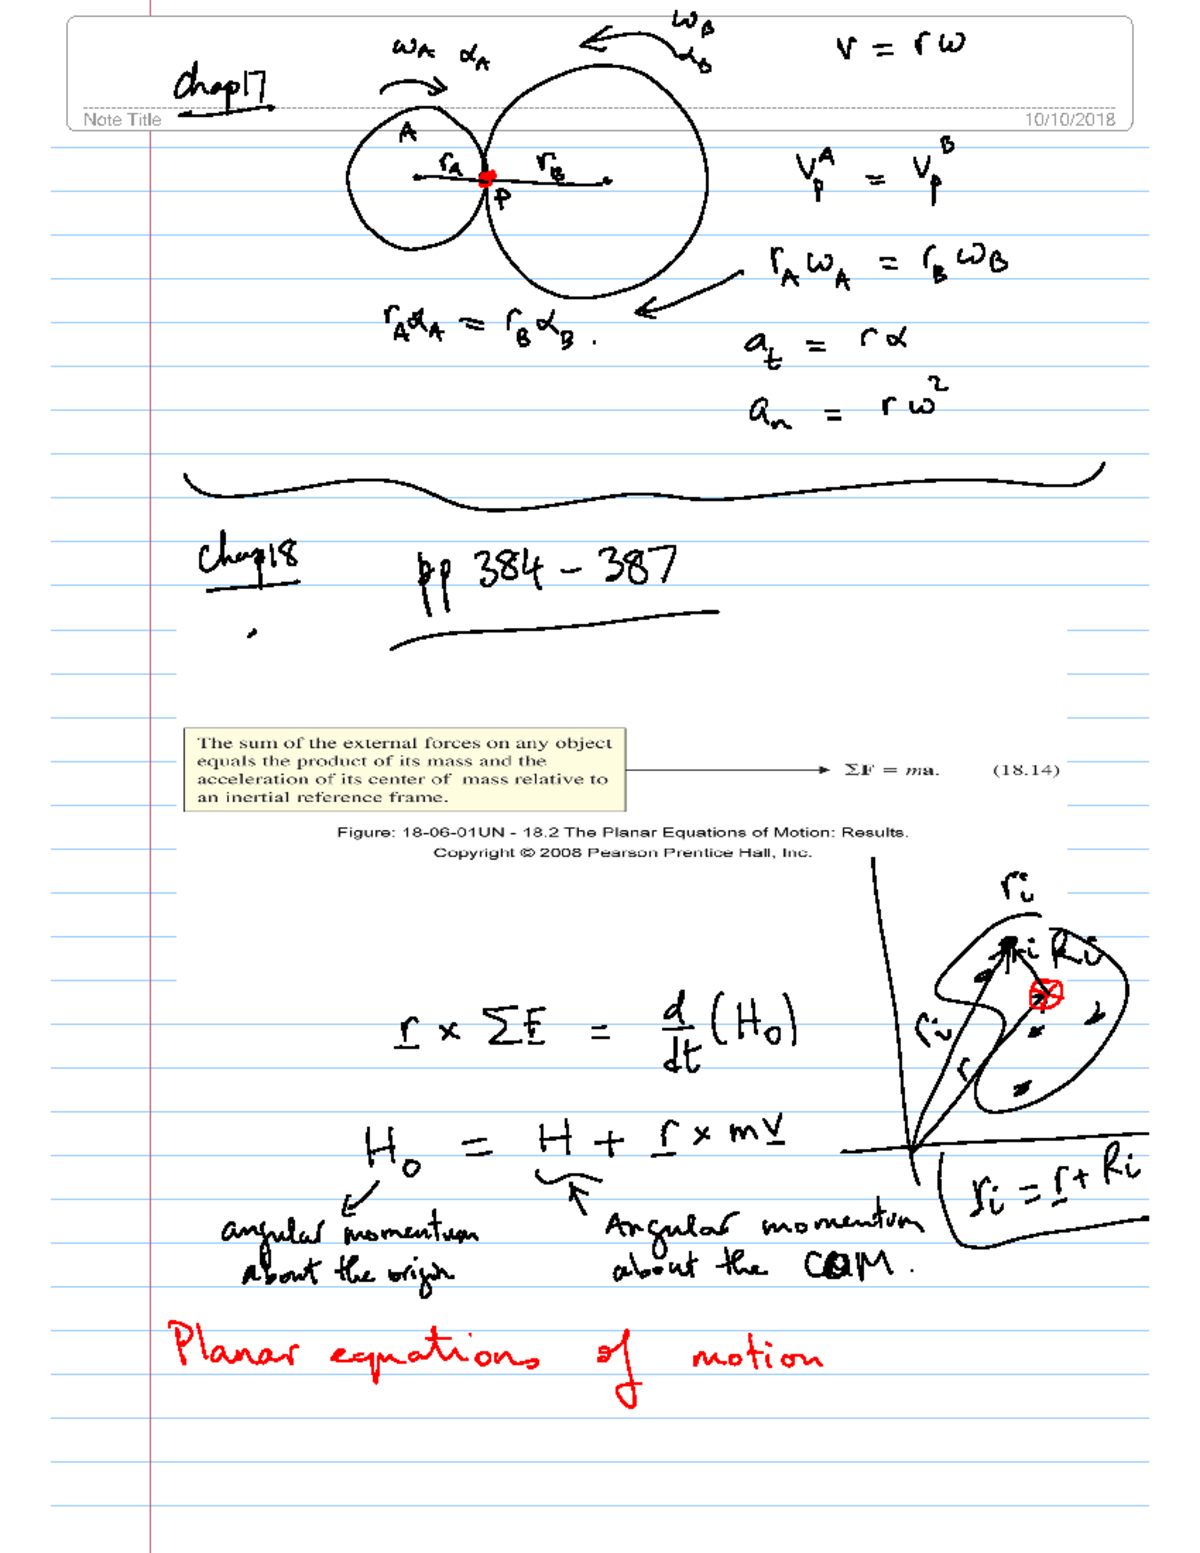 ω_B
ω_A α_A
α_B
v = r ω
Chap17
Note Title
10/10/2018
A
r_A
r_B
P
V_P^A = V_P^B
r_A ω_A = r_B ω_B
r_A α_A = r_B α_B .
a_t = r α
a_n = r ω²
Chap18
pp 384 – 387
The sum of the external forces on any object
equals the product of its mass and the
acceleration of its center of mass relative to
an inertial reference frame.
ΣF = ma. (18.14)
Figure: 18-06-01UN - 18.2 The Planar Equations of Motion: Results.
Copyright © 2008 Pearson Prentice Hall, Inc.
r_i
R_i
r_i
r
r × ΣF = d/dt (H_o)
H_o = H + r × m v
r_i = r + R_i
angular momentum
about the origin
Angular momentum
about the COM .
Planar equations of motion